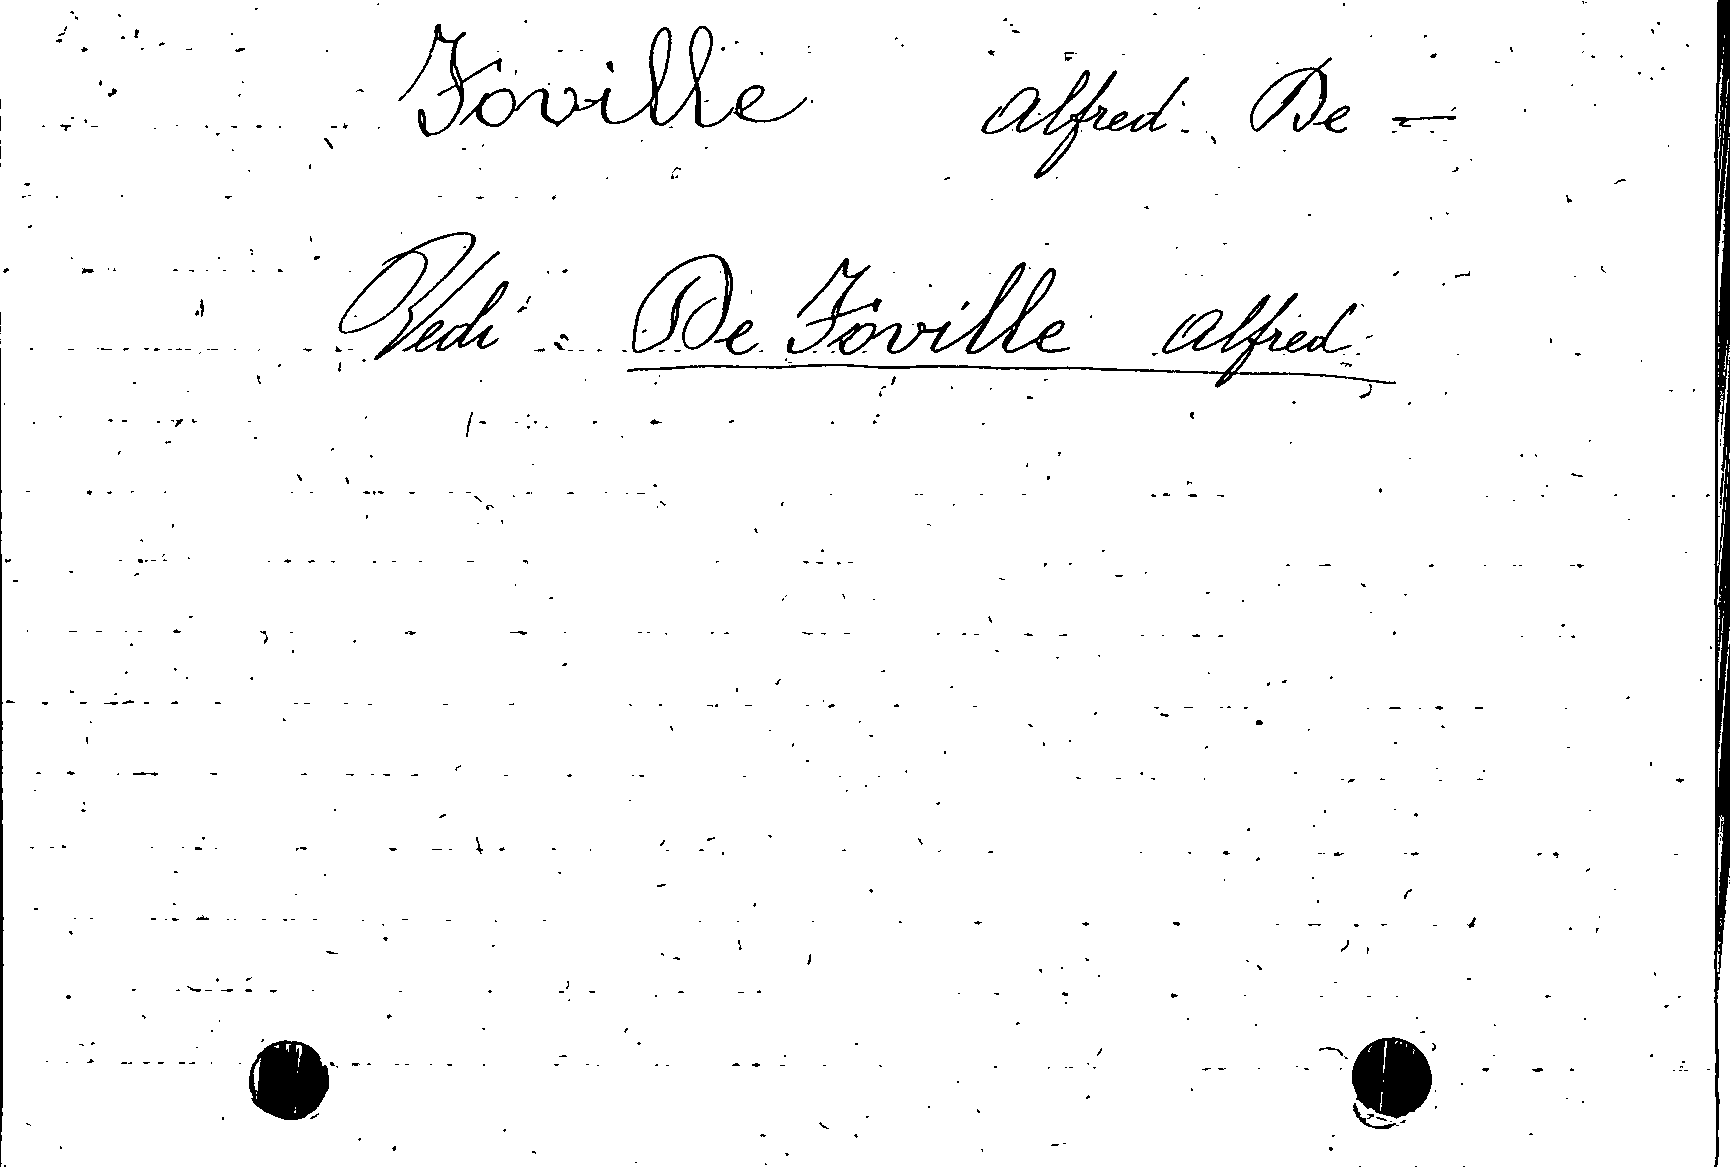 Foville Alfred De —
Vedi : De Foville Alfred